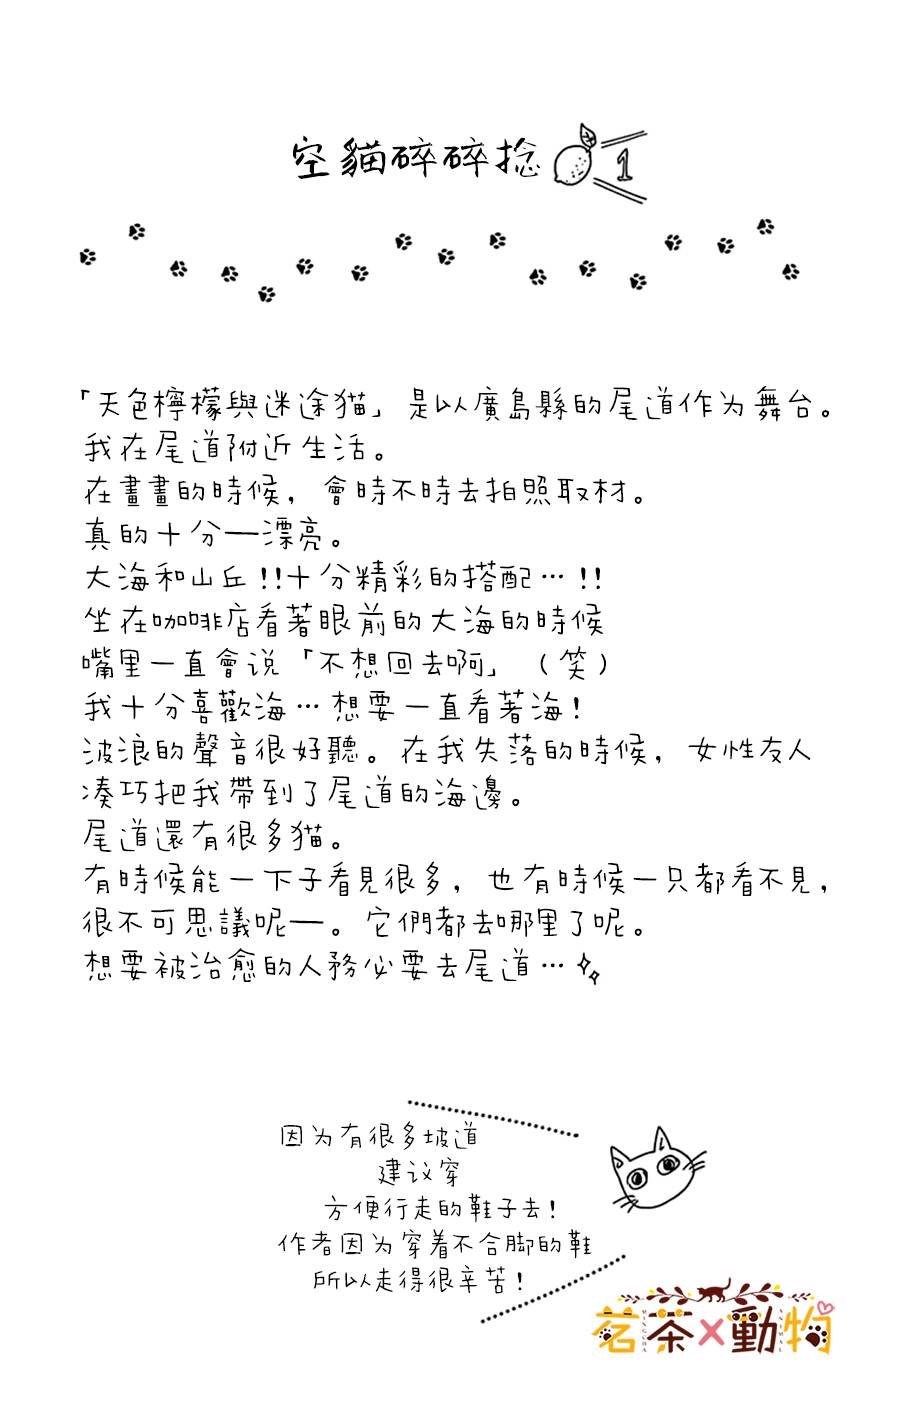 空貓碎碎捻 1
「天色檸檬與迷途猫」是以廣島縣的尾道作为舞台。
我在尾道附近生活。
在畫畫的時候，會時不時去拍照取材。
真的十分一漂亮。
大海和山丘!!十分精彩的搭配…!!
坐在咖啡店看著眼前的大海的時候
嘴里一直會说「不想回去啊」（笑）
我十分喜歡海…想要一直看著海!
波浪的聲音很好聽。在我失落的時候，女性友人
凑巧把我帶到了尾道的海邊。
尾道還有很多猫。
有時候能一下子看見很多，也有時候一只都看不見，
很不可思議呢一。它們都去哪里了呢。
想要被治愈的人務必要去尾道…
因为有很多坡道
建议穿
方便行走的鞋子去!
作者因为穿着不合脚的鞋
所以走得很辛苦!
茗茶×動物